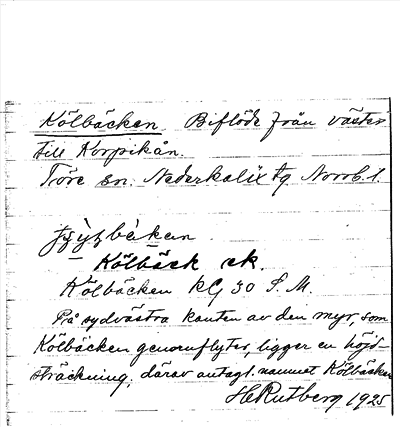 Kölbäcken Biflöde från väster
till Korpikån.
Töre sn. Nederkalix tg Norrb. l.
Kölbäck ck.
Kölbäcken kG 30 S. M.
På sydvästra kanten av den myr, som
Kölbäcken genomflyter, ligger en höjd-
sträckning, därav antagl. namnet Kölbäcken
H Rutberg 1925